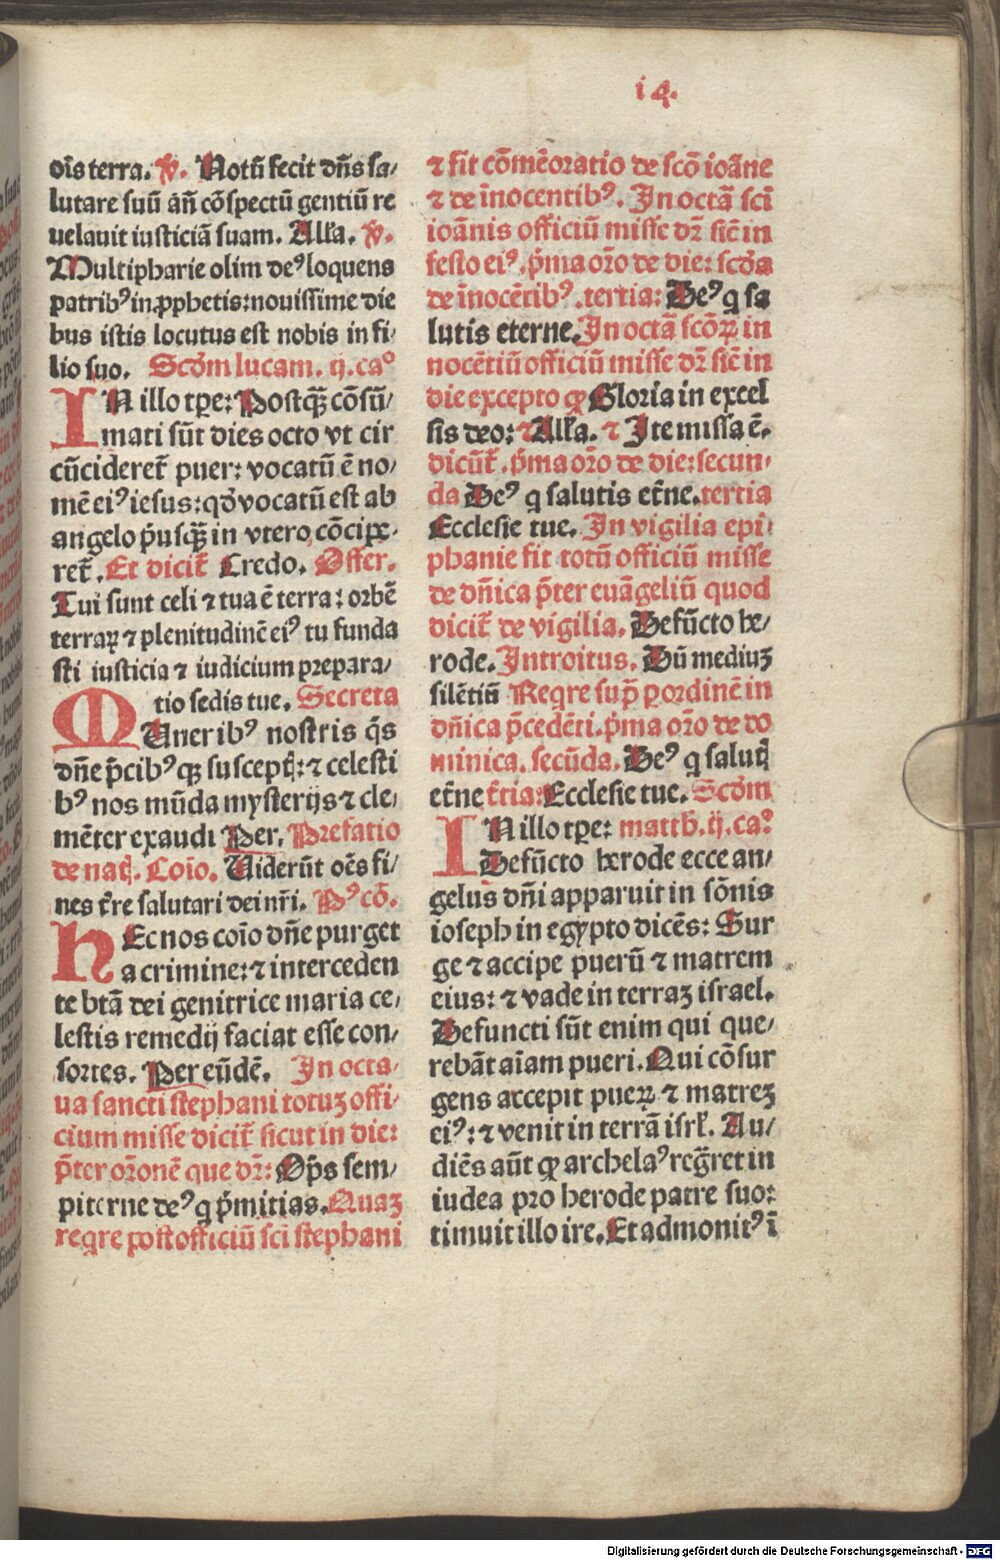 i4.
oīs terra. ℣. Notū fecit dn̄s sa/
lutare suū añ cōspectū gentiū re
uelauit iusticiā suam. Alła. ℣.
Multipharie olim deꝰ loquens
patribꝰ in ꝓphetis: nouissime die
bus istis locutus est nobis in fi/
lio suo. Scd̄m lucam. ij. caº
IN illo tꝑe: Postqȝ̄ cōsū/
mati sūt dies octo vt cir
cūcideret̄ puer: vocatū ē no/
mē eiꝰ iesus: qd̄ vocatū est ab
angelo p̄usqȝ̄ in vtero cōcipe/
ret̄. Et dicit̄ Credo. Offer.
Tui sunt celi ⁊ tua ē terra: orbē
terraꝝ ⁊ plenitudinē eiꝰ tu funda
sti iusticia ⁊ iudicium prepara/
tio sedis tue. Secreta
MUneribꝰ nostris q̄s
dn̄e p̄cibꝰqȝ susceptꝭ: ⁊ celesti
bꝰ nos mūda mysterijs ⁊ cle/
mēter exaudi Per. Prefatio
de natꝭ. Coīo. Uiderūt oēs fi/
nes t̄re salutari dei nr̄i. Pꝰ cō.
HEc nos coīo dn̄e purget
a crimine: ⁊ interceden
te btā dei genitrice maria ce/
lestis remedij faciat esse con/
sortes. Per eūdē. In octa/
ua sancti stephani totuȝ offi/
cium misse dicit̄ sicut in die:
p̄ter or̄onē que dr̄: Op̄s sem/
piterne deꝰ q p̄mitias. Quaȝ
reqre post officiū sci stephani
⁊ fit cōmēoratio de scō ioāne
⁊ de īnocentibꝰ. In octā sci
ioānis officiū misse dr̄ sic̄ in
festo eiꝰ. p̄ma or̄o de die: scd̄a
de īnocētibꝰ. tertia: Deꝰ q sa
lutis eterne. In octā scōꝝ in
nocētiū officiū misse dr̄ sic̄ in
die excepto ꝙ Gloria in excel
sis deo: ⁊ Alła. ⁊ Ite missa ē.
dicūt̄. p̄ma or̄o de die: secun/
da Deꝰ q salutis et̄ne. tertia
Ecclesie tue. In vigilia epi/
phanie fit totū officiū misse
de dn̄ica p̄ter euāgeliū quod
dicit̄ de vigilia. Defūcto he/
rode. Introitus. Dū mediuȝ
silētiū Reqre sup̄ ꝑordinē in
dn̄ica p̄cedēti. p̄ma or̄o de do
minica. secūda. Deꝰ q salutꝭ
et̄ne t̄tia: Ecclesie tue. Scd̄m
IN illo tꝑe: matth. ij. caº.
Defūcto herode ecce an/
gelus dn̄i apparuit in sōnis
ioseph in egypto dicēs: Sur
ge ⁊ accipe puerū ⁊ matrem
eius: ⁊ vade in terraȝ israel.
Defuncti sūt enim qui que/
rebāt aīam pueri. Qui cōsur
gens accepit pueꝝ ⁊ matreȝ
eiꝰ: ⁊ venit in terrā isrł. Au/
diēs aūt ꝙ archelaꝰ regn̄ret in
iudea pro herode patre suo:
timuit illo ire. Et admonitꝰ ī
Digitalisierung gefördert durch die Deutsche Forschungsgemeinschaft - DFG